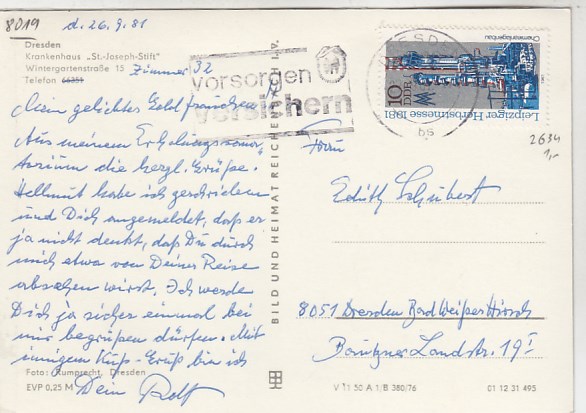 8019
d. 26.9.81
Dresden
Krankenhaus „St.-Joseph-Stift"
Wintergartenstraße 15 Zimmer 32
Telefon 66351
Mein geliebtes Goldfrauchen!
Aus meinem Erholungssana-
torium die herzl. Grüße.
Hellmut habe ich geschrieben
und Dich angemeldet, daß er
ja nicht denkt, daß Du durch
mich etwa von Deiner Reise
absehen wirst. Ich werde
Dich ja sicher einmal bei
mir begrüßen dürfen. Mit
innigem Kuß-Gruß bin ich
Dein Rolf
Foto: Rumprecht, Dresden
EVP 0,25 M
BILD UND HEIMAT REICHENBACH I. V.
vorsorgen
versichern
Chemieanlagenbau
DDR
10
Leipziger Herbstmesse 1981
2634
1,-
Frau
Edith Schubert
8051 Dresden Bad Weißer Hirsch
Bautzner Landstr. 19 I
V 11 50 A 1/B 380/76
01 12 31 495